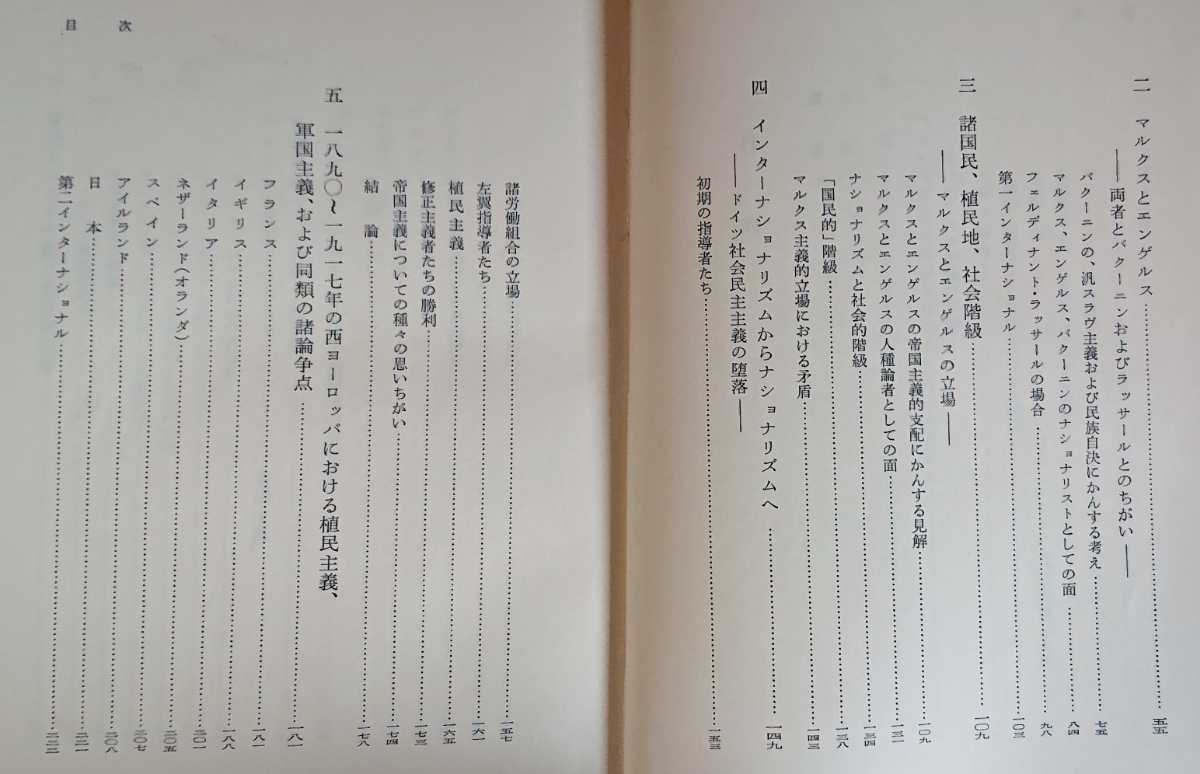 二　マルクスとエンゲルス……五五
――両者とバクーニンおよびラッサールとのちがい――
バクーニンの、汎スラヴ主義および民族自決にかんする考え……七五
マルクス、エンゲルス、バクーニンのナショナリストとしての面……八四
フェルディナント・ラッサールの場合……九八
第一インターナショナル……一〇三
三　諸国民、植民地、社会階級……一〇九
――マルクスとエンゲルスの立場――
マルクスとエンゲルスの帝国主義的支配にかんする見解……一〇九
マルクスとエンゲルスの人種論者としての面……一三一
ナショナリズムと社会的階級……一三四
「国民的」階級……一三八
マルクス主義的立場における矛盾……一四三
四　インターナショナリズムからナショナリズムへ……一四九
――ドイツ社会民主主義の堕落――
初期の指導者たち……一五三
目次
諸労働組合の立場……一五七
左翼指導者たち……一六一
植民主義……一六五
修正主義者たちの勝利……一七三
帝国主義についての種々の思いちがい……一七四
結論……一七八
五　一八九〇～一九一七年の西ヨーロッパにおける植民主義、
軍国主義、および同類の諸論争点……一八一
フランス……一八一
イギリス……一八八
イタリア……二〇一
ネザーランド(オランダ)……二〇五
スペイン……二〇七
アイルランド……二〇八
日本……二二一
第二インターナショナル……二二二